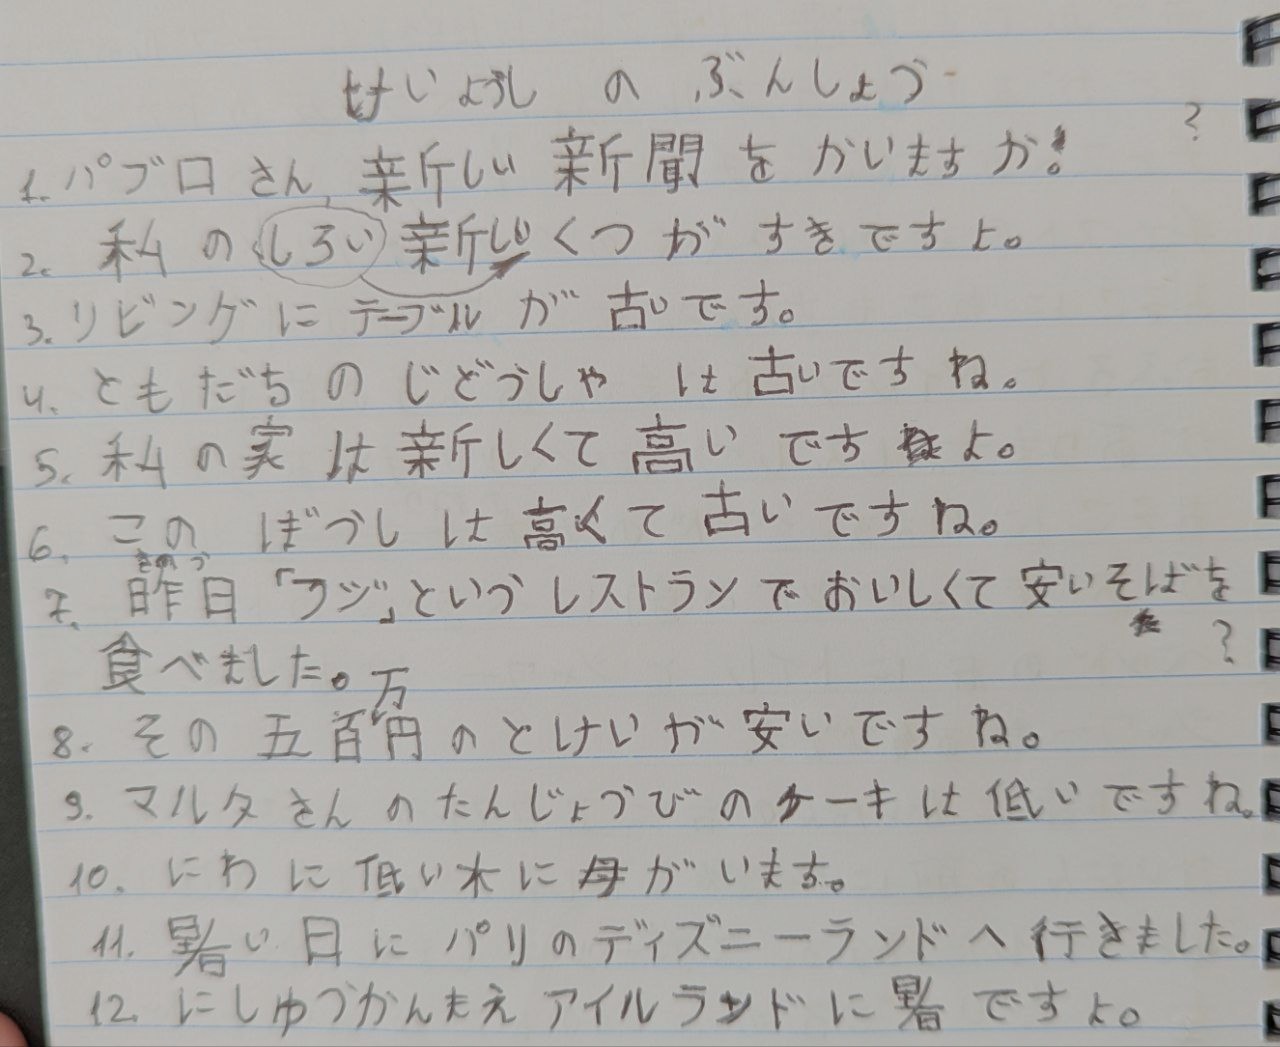 けいようしの ぶんしょう
?
1. パブロさん, 新しい 新聞を かいますか!
2. 私の しろい 新しい くつが すきですよ。
3. リビングに テーブルが 古いです。
4. ともだちの じどうしゃ は 古いですね。
5. 私の 実は 新しくて 高い です よ。
6. この ぼうし は 高くて 古いですね。
きのう
7. 昨日 「フジ」という レストランで おいしくて 安いそばを
食べました。
?
万
8. その 五百円の とけいが 安いですね。
9. マルタさんの たんじょうびの ケーキは 低いですね。
10. にわに 低い 木に 母が います。
11. 暑い 日に パリの ディズニーランドへ 行きました。
12. にしゅうかんまえ アイルランドに 暑 ですよ。